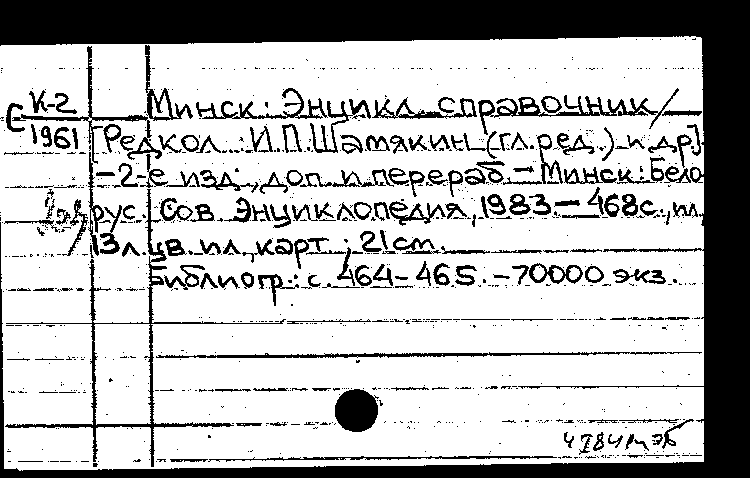 С К-2 Минск: Энцикл. справочник/
1961 [Редкол.: И.П.Шамякин (гл.ред.) и др]
-2-е изд., доп и перераб. - Минск: Бело
рус. Сов. Энциклопедия, 1983 - 468с., ил,
13л.цв.ил., карт.; 21 cm.
Библиогр.: с. 464-465. - 70000 экз.